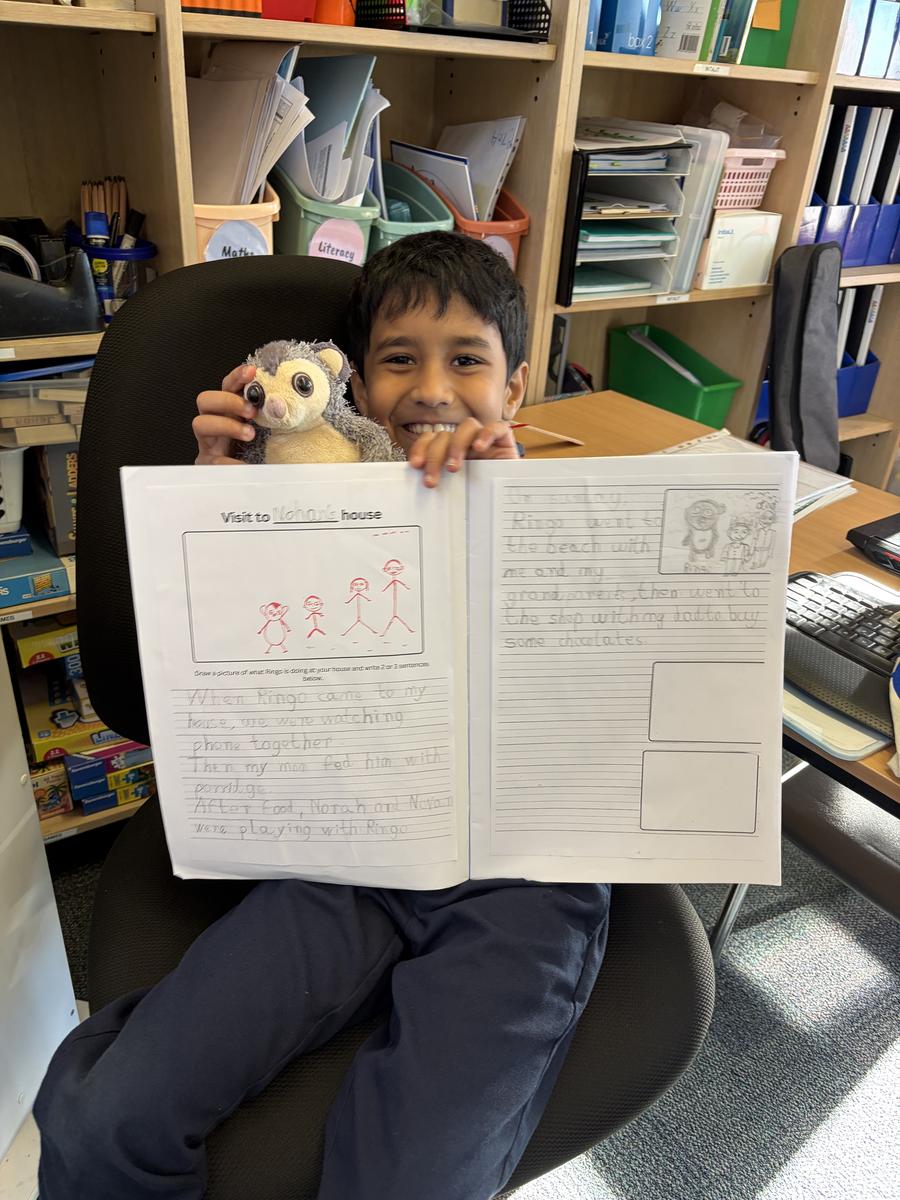 box 2
Maths
Literacy
Visit to Nohan's house
Draw a picture of what Ringo is doing at your house and write 2 or 3 sentences
below.
When Ringo came to my
house, we were watching
phone together.
Then my mom fed him with
porridge.
After food, Norah and
were playing with Ringo
On sunday,
Ringo went to
the beach with
me and my
grandparents, then went to
the shop with my dad to buy
some chocolates.
Ringo